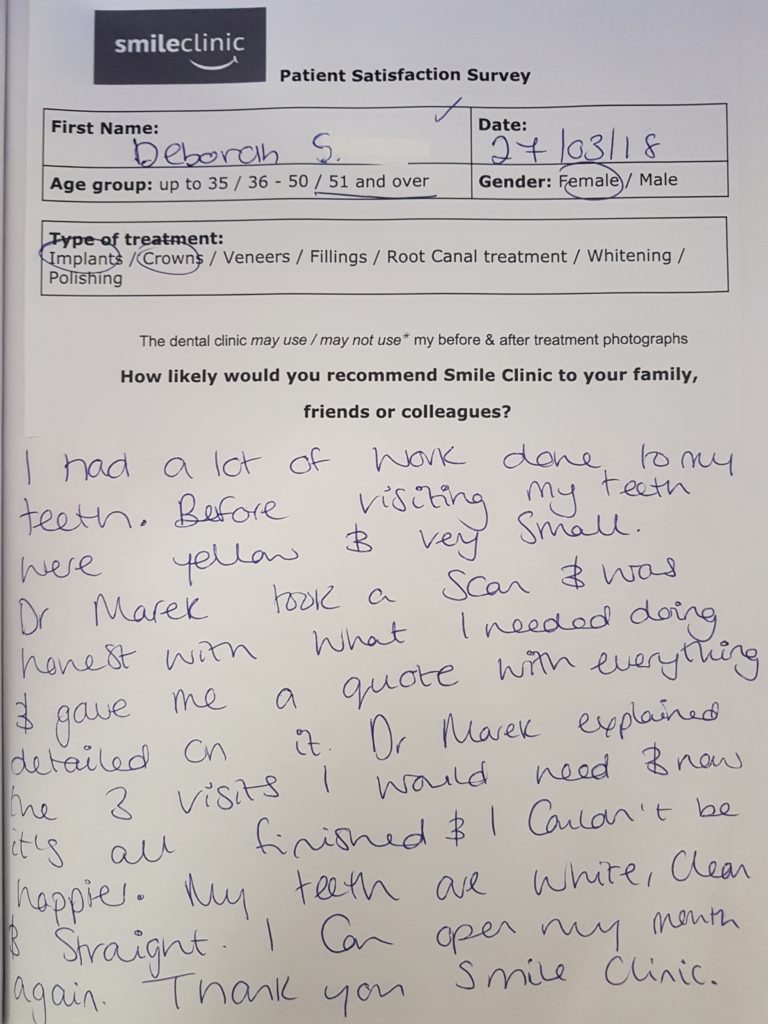 smileclinic
Patient Satisfaction Survey
First Name: Deborah S.
Date: 27/03/18
Age group: up to 35 / 36 - 50 / 51 and over
Gender: Female / Male
Type of treatment:
Implants / Crowns / Veneers / Fillings / Root Canal treatment / Whitening /
Polishing
The dental clinic may use / may not use* my before & after treatment photographs
How likely would you recommend Smile Clinic to your family,
friends or colleagues?
I had a lot of work done to my
teeth. Before visiting my teeth
were yellow & very small.
Dr Marek took a scan & was
honest with what I needed doing
& gave me a quote with everything
detailed on it. Dr Marek explained
the 3 visits I would need & now
it's all finished & I couldn't be
happier. My teeth are white, clean
& straight. I can open my mouth
again. Thank you Smile Clinic.